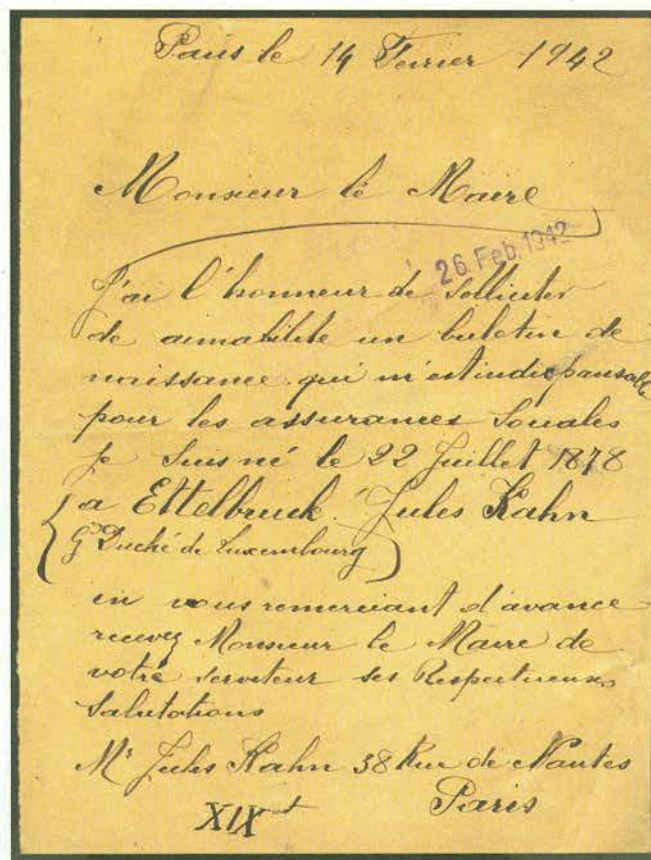 Paris le 14 Fevrier 1942
Monsieur le Maire
26. Feb. 1942
J'ai l'honneur de solliciter
de aimabilité un buletin de
naissance qui m'est indispansable
pour les assurances Sociales
je suis né le 22 Juillet 1878
a Ettelbruck. Jules Kahn
Gd Duché de Luxembourg
en vous remerciant d'avance
recevez Monsieur le Maire de
votre serviteur ses Respectueuses
Salutations
Mr Jules Kahn 38 Rue de Nantes
Paris
XIXe